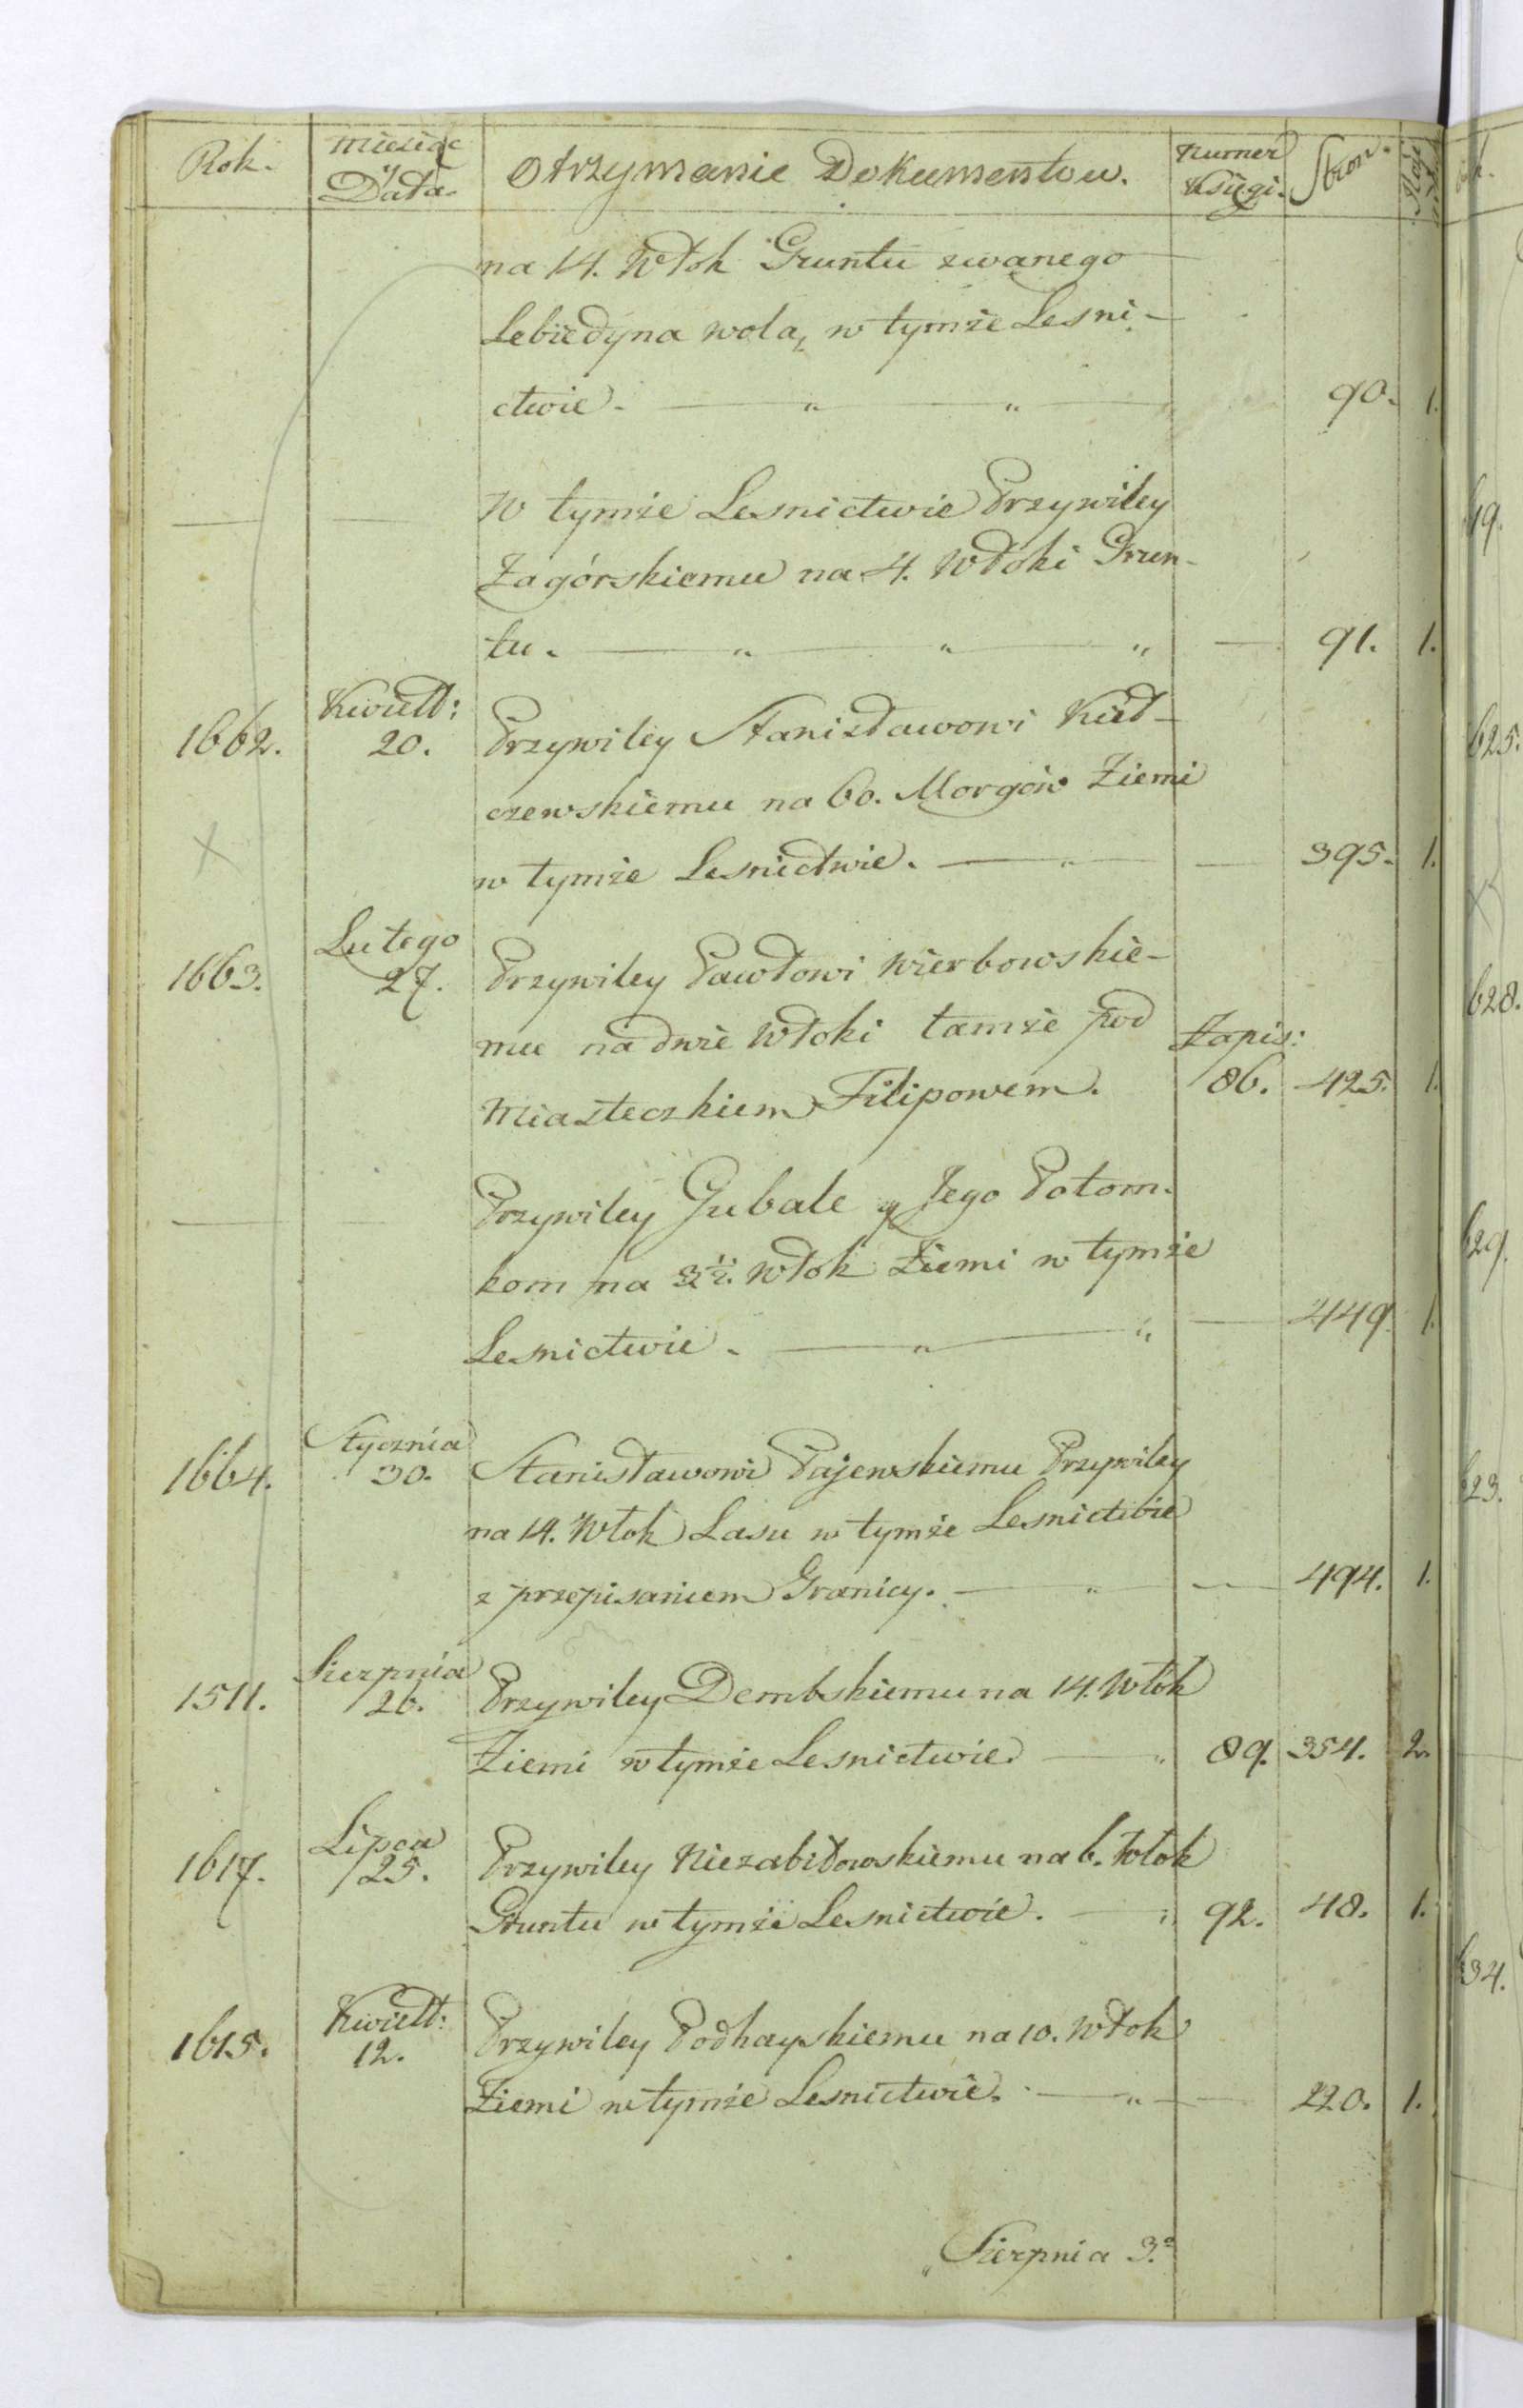 Rok. Miesiąc y Data. Otrzymanie Dokumentow. Numer Księgi. Stron.
na 14. Włok Gruntu zwanego
Lebiedyna wola, w tymże Lesni-
ctwie. — „ — „ — 90. 1.
W tymże Lesnictwie Przywiley
Zagórskiemu na 4. Włoki Grun-
tu. — „ — „ — „ — 91. 1.
1662. Kwiett: 20. Przywiley Stanisławowi Kieł-
czewskiemu na 60. Morgów Ziemi
w tymże Lesnictwie. — „ — 395. 1.
1663. Lutego 27. Przywiley Pawłowi Wierbowskie-
mu na dwie Włoki tamże pod Zapis:
Miasteczkiem Filipowem. 86. 425. 1.
Przywiley Gubale y Jego Potom-
kom na 3½. Włok Ziemi w tymże
Lesnictwie. — „ — „ — 449. 1.
1664. Stycznia 30. Stanisławowi Pajewskiemu Przywiley
na 14. Włok Lasu w tymże Lesnictwie
z przepisaniem Granicy. — „ — 494. 1.
1511. Sierpnia 26. Przywiley Dembskiemu na 14. Włok
Ziemi w tymże Lesnictwie. — „ 89. 354. 2.
1617. Lipca 25. Przywiley Niezabitowskiemu na 6. Włok
Gruntu w tymże Lesnictwie. — „ 92. 48. 1.
1615. Kwiett: 12. Przywiley Podhayskiemu na 10. Włok
Ziemi w tymże Lesnictwie. — „ — 220. 1.
„Sierpnia 3.º